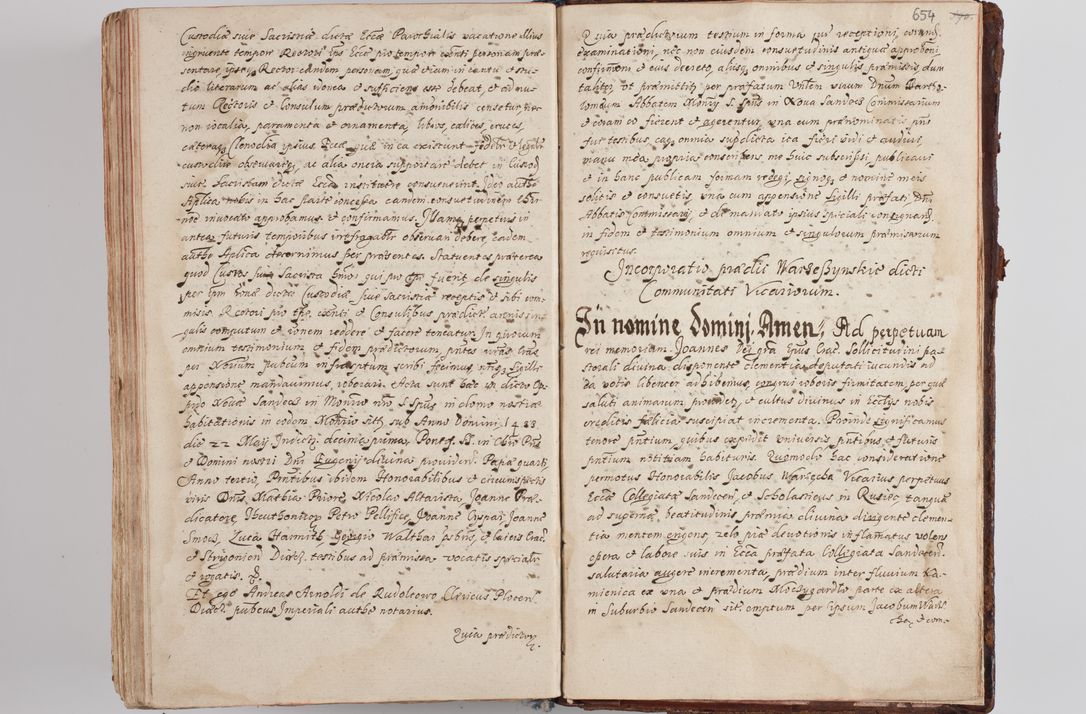 Custodiæ suæ Sacristiæ dictæ Ecclæ Parochialis vacatione illius
ingruente tempore Rectori ips Ecclæ pro tempore existi personam præ-
sentare, ipseq; Rector eandem personam, quæ etiam in cantu et stu-
dio literarum ac aliàs idonea et sufficiens esse debeat, et ad nu-
tum Rectoris et Consulum prædictorum amovibilis censetur, nec
non iocalia, paramenta et ornamenta, libros, calices, cruces,
cæteraq; Clenodia ipsius Ecclæ quæ in ea existunt
custodire observareq;, ac alia onera supportare debet in Custod
sive Sacristam dictæ Ecclæ instituere consueverint. Ideo autho
Aplica nobis in hac parte concessa eandem consuetudinem Chri
noe invocato approbamus et confirmamus. Illamq; perpetuis in
antea futuris temporibus irrefragabr observari debere, eadem
autho Aplica decernimus per præsentes. Statuentes præterea
quod Custos sive Sacrista huiu qui pro tpre fuerit de singulis
per ipm bonæ dictæ Custodiæ sive Sacristiæ receptis et sibi com-
missis Rectori pro tpre existi et Consulibus prædictis annis sin-
gulis computum et ronem reddere et facere teneatur. In quorum
omnium testimonium et fidem prædictorum, pntes nras lras
per Notarium publicum infrascptum scribi fecimus, nriq; Sigilli
appensione mandavimus, roborari. Acta sunt hæc in dicto Op-
pido Nova Sandecz in Monrio nro S. Spus in domo nostræ
habitationis in eodem Monrio sitæ sub Anno Domini 1433
die 22 Maij Indicti. decima prima, Pontif. SS. in Chro Pris
et Domini nostri Dni Eugenij divina providen. Papæ quarti
Anno tertio, Pntibus ibidem Honorabilibus et circumspectis
viris Dnis, Mathia Priore, Nicolao Altarista, Joanne Præ-
dicatore, Petro Pellifice, Joanne Caspar, Joanne
Smoes, Luca Georgio Walthar pbris, et laicis Crac.
et Strigonien Diæc. testibus ad præmissa vocatis specialr
et rogatis.
Et ego Andreas Arnoldi de Rudolcowo Clericus Plocen.
Diæc. publicus Imperiali autho notarius.
Quia prædictorq;
654
Quia prædictorum testium in formâ juri receptioni, eorundq;
examinationi, nec non eiusdem consuetudinis antiquæ approboni,
confirmoni et eius decreto, aliisq; omnibus et singulis præmissis, dum
taliter ut præmittitur per præfatum Vnlem virum Dnum Bartho-
lomæum Abbatem Monrij S. Spus in Nova Sandecz Commissarium
et coram eo fierent et agerentur, una cum prænominatis præns
fui testibus eaq; omnia supdicta ita fieri vidi et audivi,
manu mea propria conscribens me huic subscripsi, publicavi
et in hanc publicam formam redegi, signoq; et nomine meis
solitis et consuetis, una cum appensione Sigilli præfati Dni
Abbatis Commissarij, et de mandato ipsius speciali consignavi
in fidem et testimonium omnium et singulorum præmissorum
requisitus.
Incorporatio prædii Warzeszynskie dicti
Communitati Vicariorum.
In nomine Domini. Amen. Ad perpetuam
rei memoriam. Joannes Dei gra Epus Crac. Sollicitudini pa-
storali divina disponente clementia deputati iucundis ad
ea votis libenter adhibemus, congrui roboris firmitatem per quæ
saluti animarum providetr, et cultus divinus in Ecclijs nobis
creditis felicia suscipiat incrementa. Proinde significamus
tenore pntium quibus expedit universis pntibus, et futuris
pntium notitiam habituris. Quomodo hac consideratione
permotus Honorabilis Jacobus Warzecha Vicarius perpetuus
Ecclæ Collegiatæ Sandecen, et Scholasticus in Rusiec tanquã
ad supernæ beatitudinis præmia divina dirigente clemen-
tia mentem erigens, zelo piæ devotionis inflamatus volens
opera et labore suis in Ecclâ præfata Collegiata Sandecen.
salutaria augere incrementa, prædium inter fluvium Ka-
mienica ex una et prædium Moczygardło parte ex altera
in Suburbio Sandecen sitũ emptum per ipsum Jacobum Warz-
che, et com-